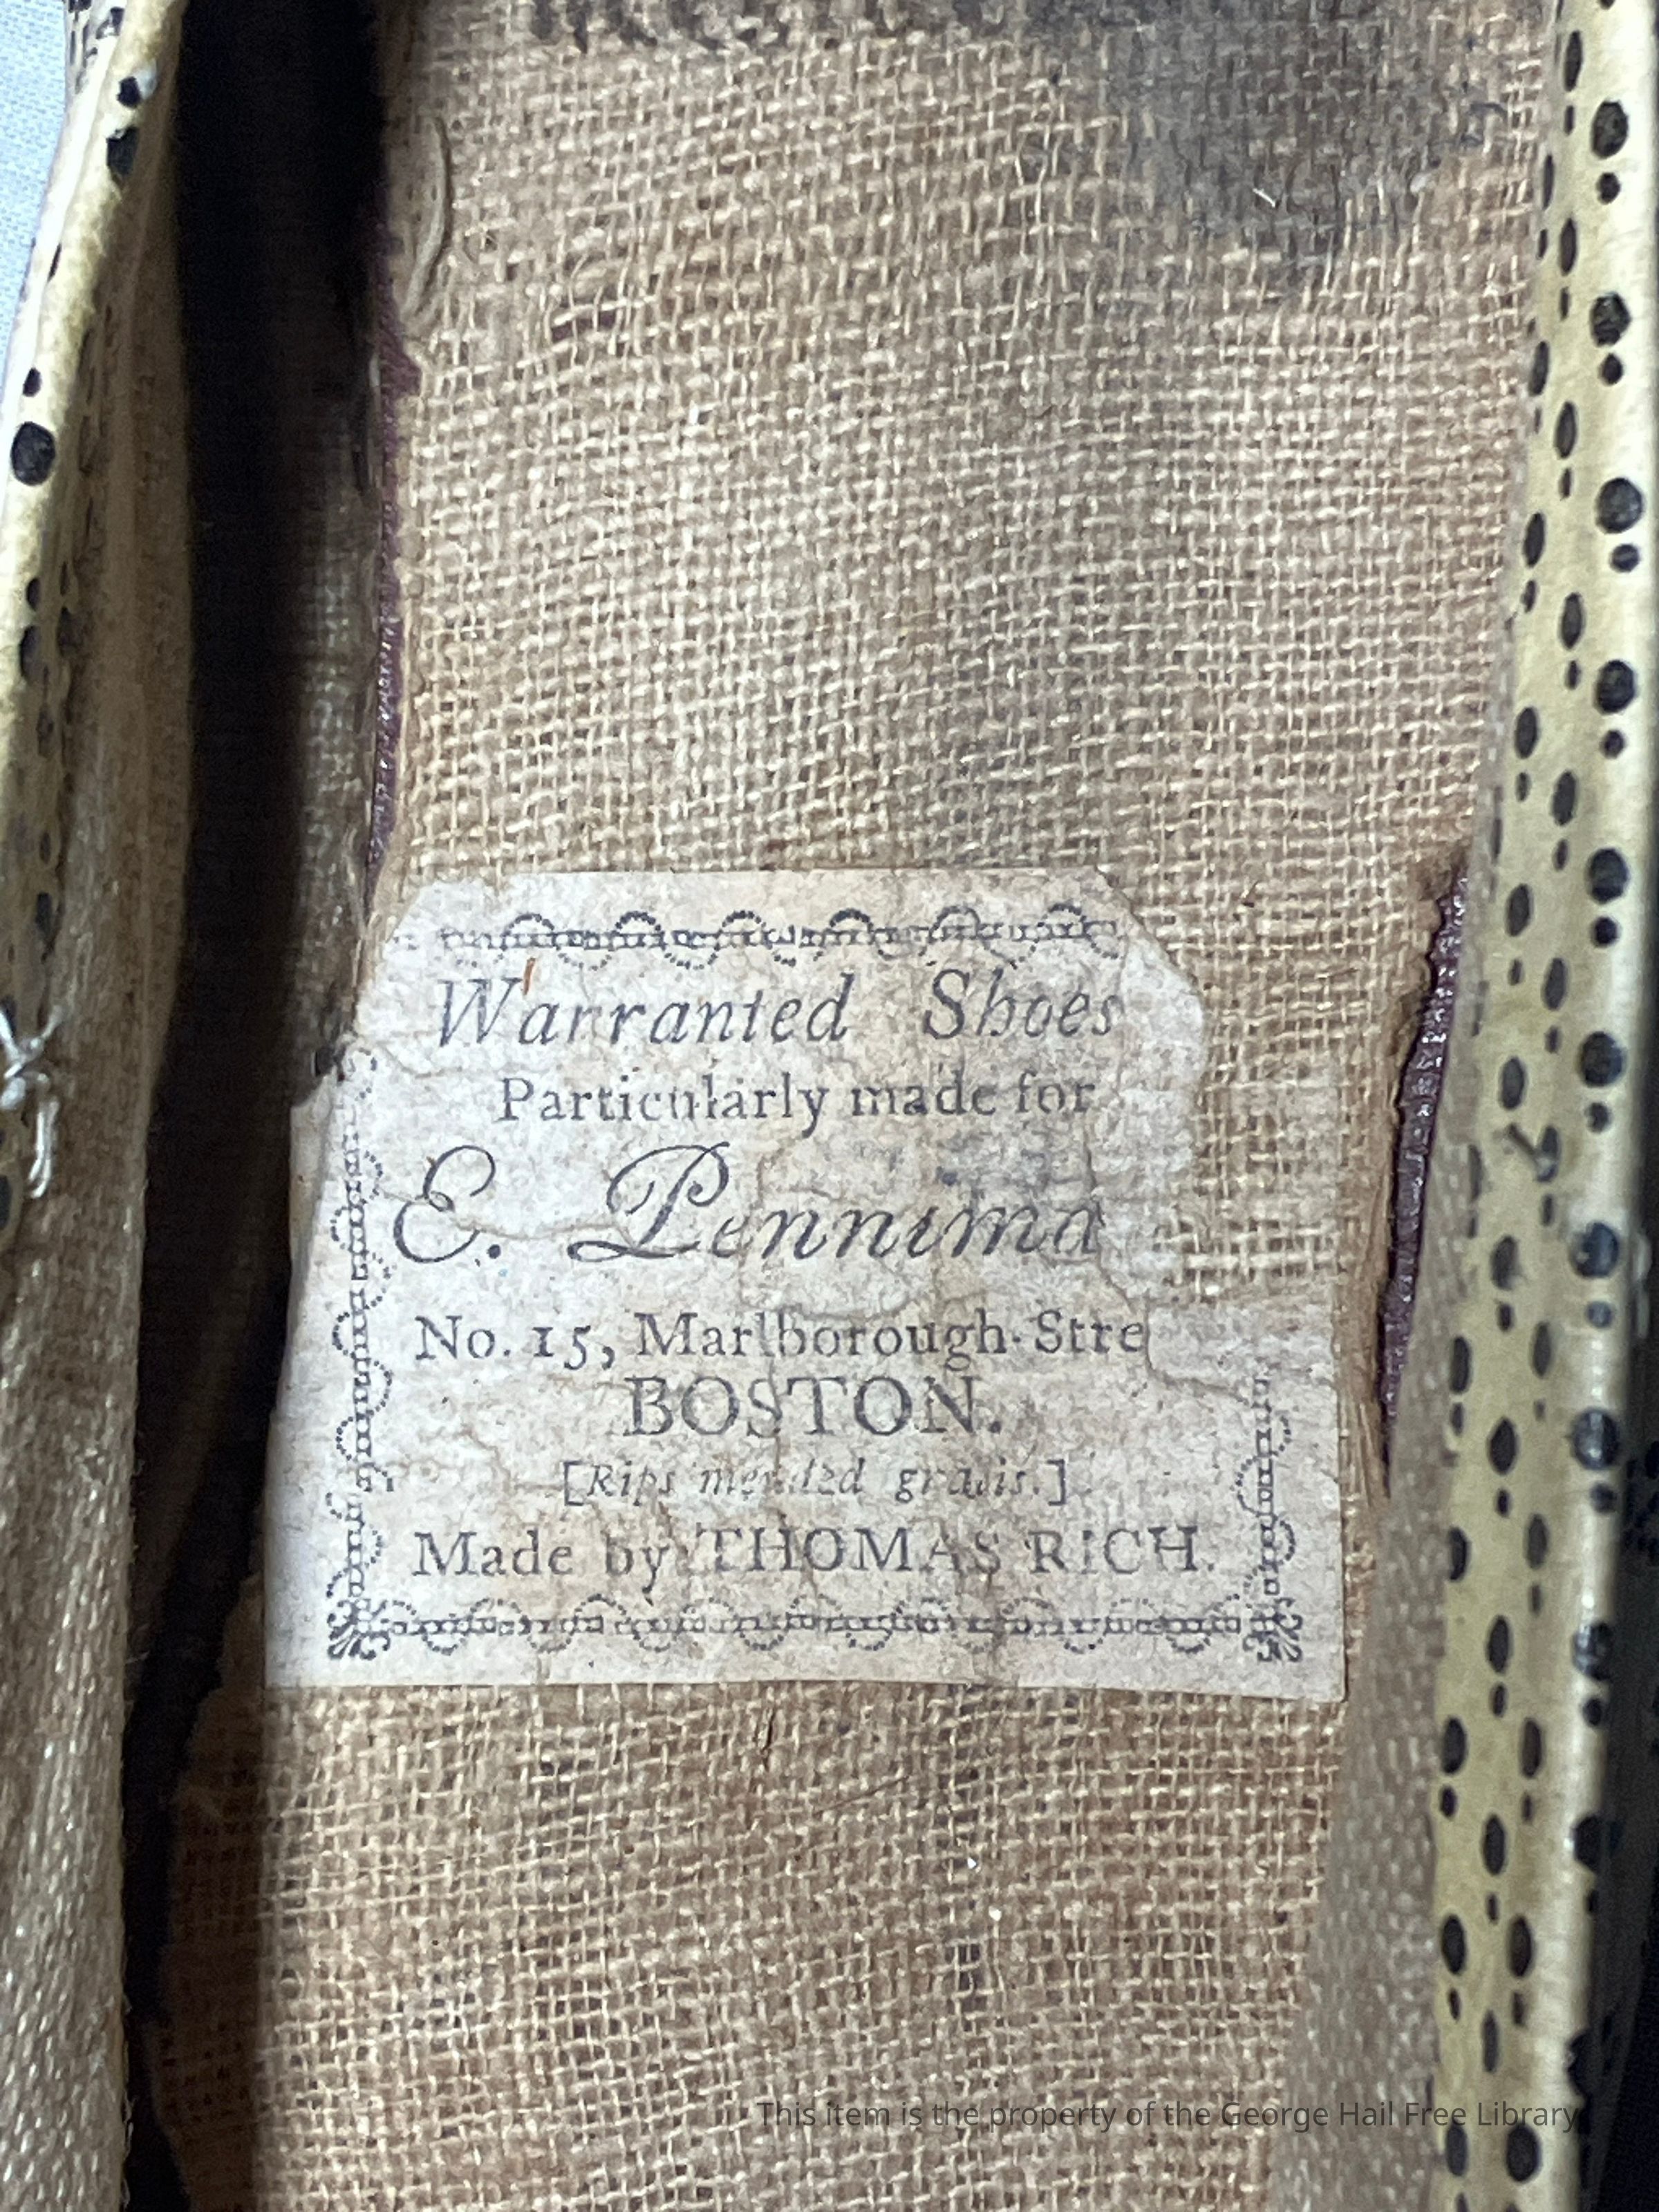 Warranted Shoes
Particularly made for
E. Pennima
No. 15, Marlborough-Stre
BOSTON.
[Rips mended gratis.]
Made by THOMAS RICH.
This item is the property of the George Hail Free Library.